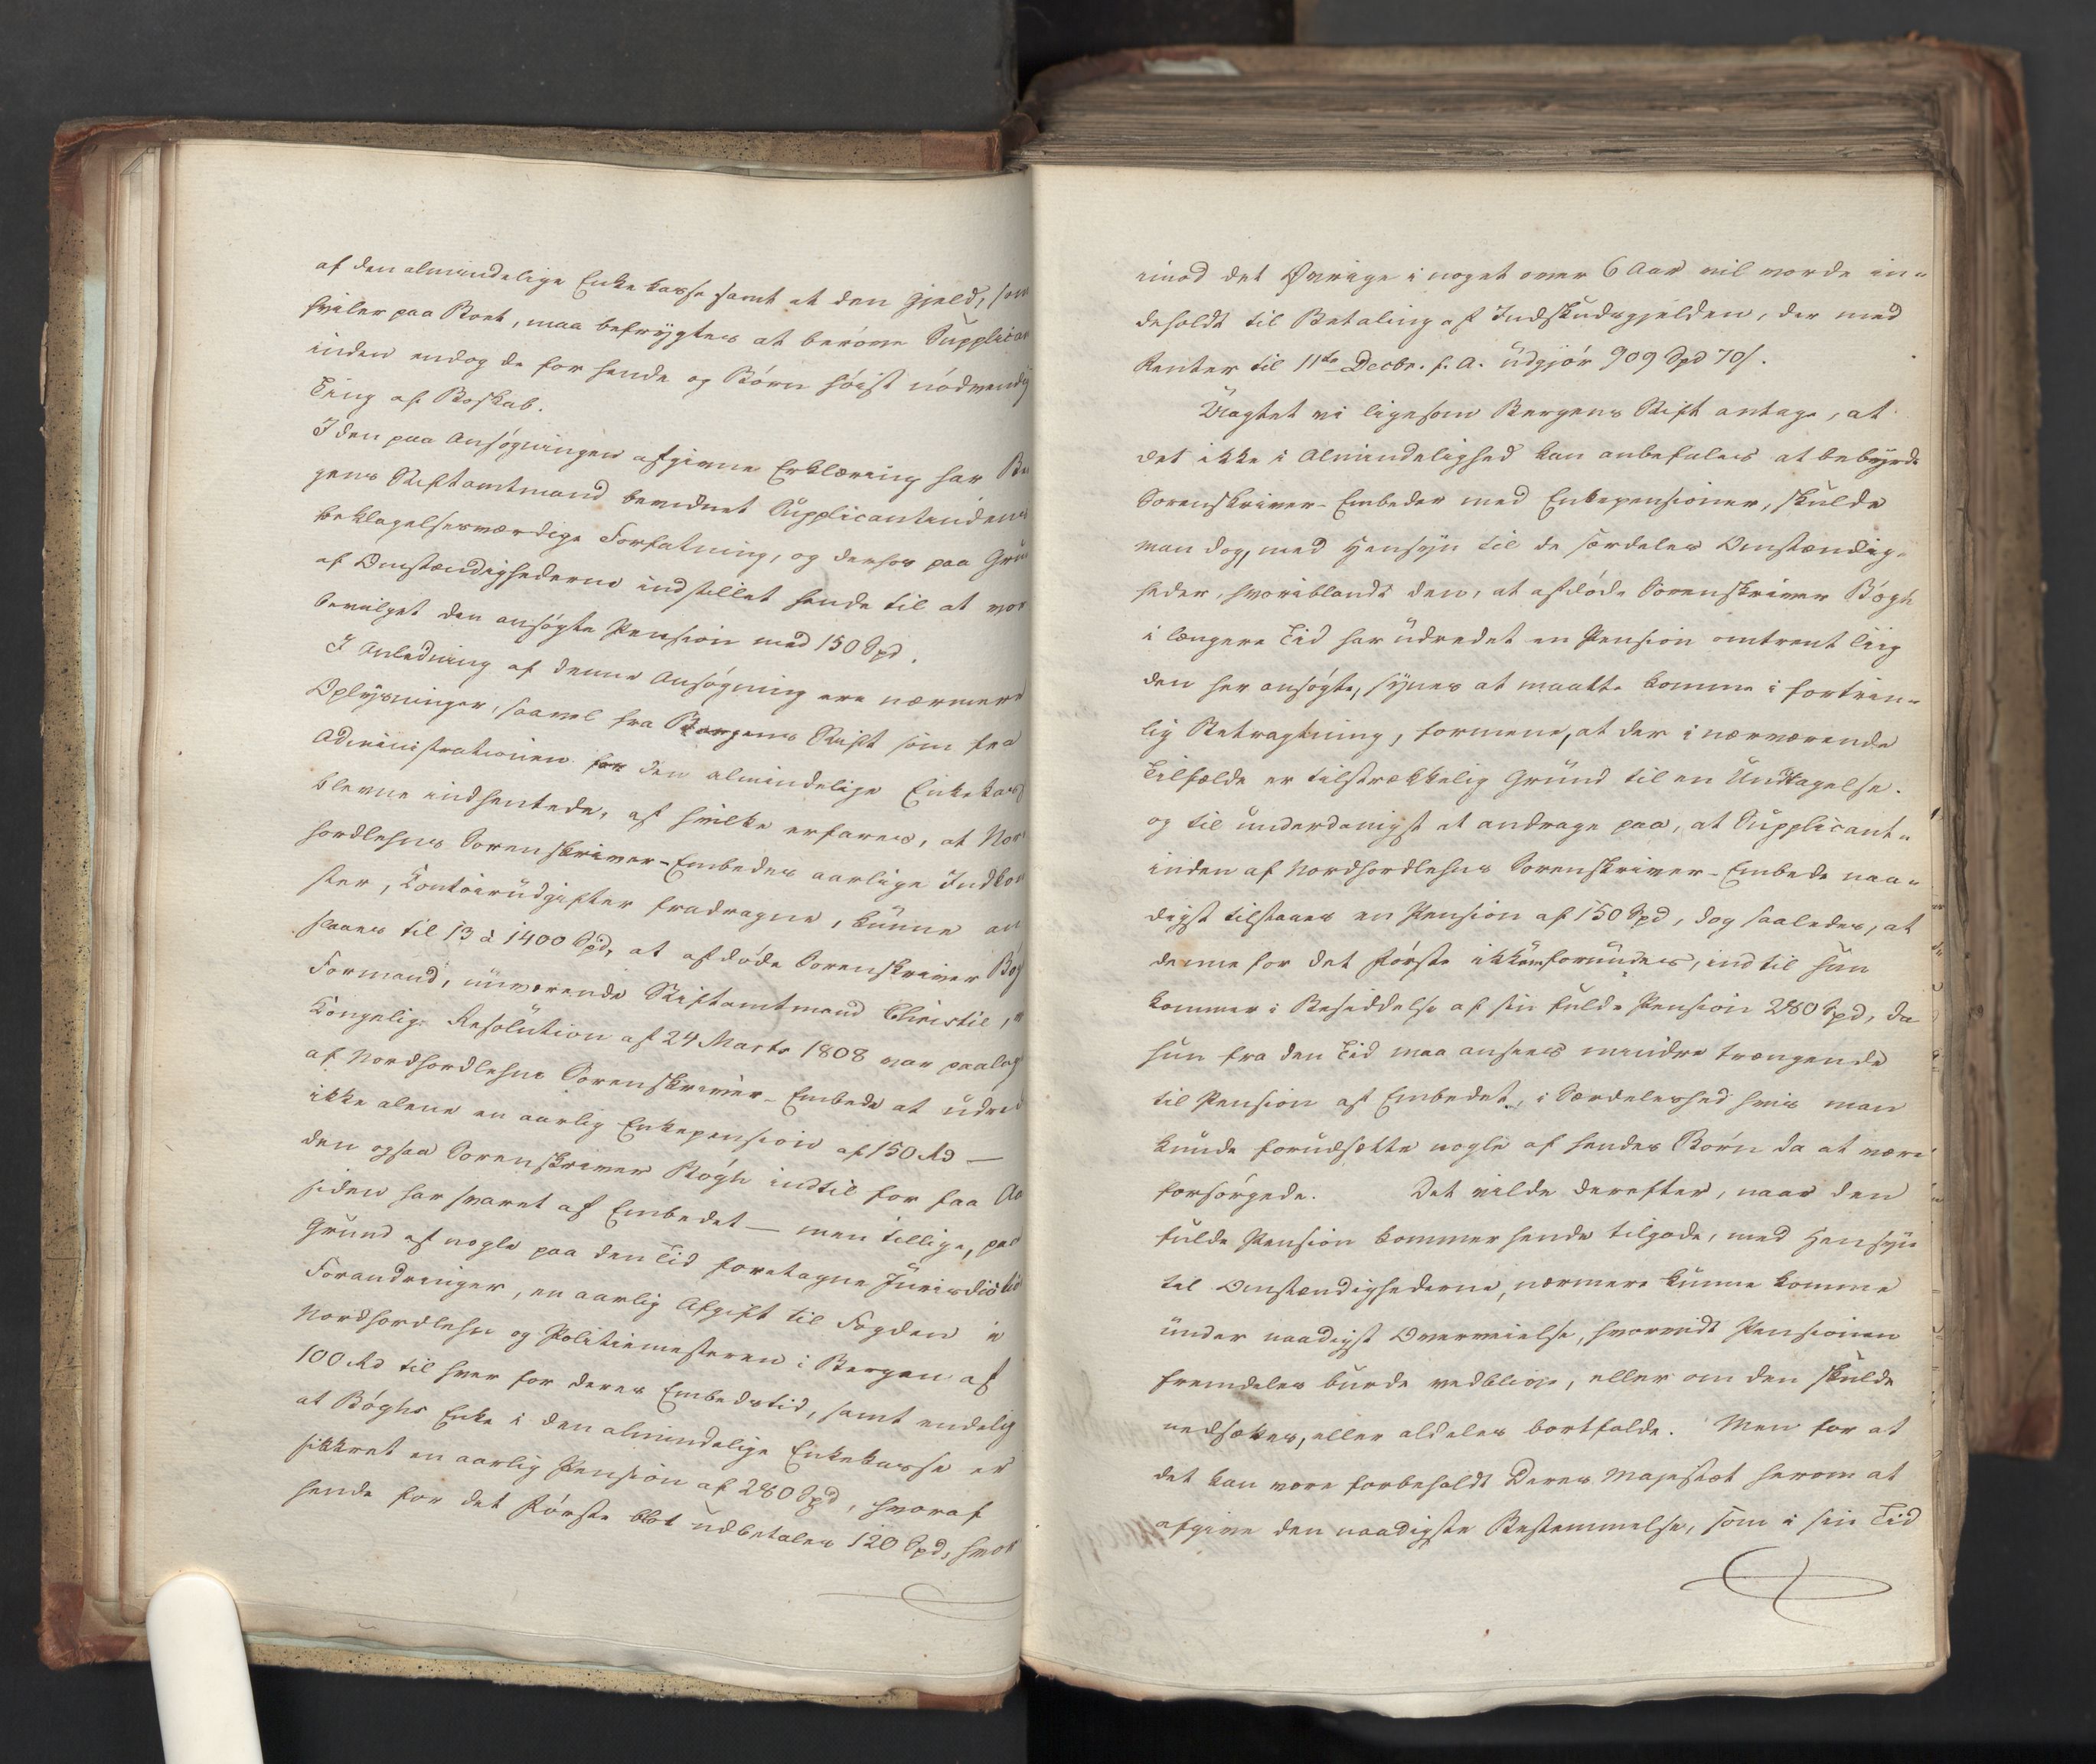 af den almindelige Enkekasse samt at den Gjeld, som
hviler paa Boet, maa befrygtes at beröve Supplicant
inden endog de for hende og Börn höist nödvendig
Ting af Boskab.
I den paa Ansögningen afgivne Erklæring har Ber
gens Stiftamtmand bevidnet Supplicantindens
beklagelsesværdige Forfatning, og derfor paa Grund
af Omstændighederne indstillet hende til at vor
bevilget den ansögte Pension med 150 Spd.
I Anledning af denne Ansögning ere nærmere
Oplysninger, saavel fra Bergens Stift som fra
Administrationen for den almindelige Enkekasse
blevne indhentede, af hvilke erfares, at Nor
hordlehns Sorenskriver-Embedes aarlige Indkom
ster, Contoirudgifter fradragne, kunne an
slaaes til 13 à 1400 Spd, at afdöde Sorenskriver Bögh
Formand, nuværende Stiftamtmand Christie, ved
Kongelig Resolution af 24 Marts 1808 var paalagt
af Nordhordlehns Sorenskriver-Embede at udrede
ikke alene en aarlig Enkepension af 150 Rd —
den ogsaa Sorenskriver Bögh indtil for faa Aar
siden har svaret af Embedet — men tillige, paa
Grund af nogle paa den Tid foretagne Jurisdictio
Forandringer, en aarlig Afgift til Fogden i
Nordhordlehn og Politiemesteren i Bergen af
100 Rd til hver for deres Embedstid, samt endelig
at Böghs Enke i den almindelige Enkekasse er
sikkret en aarlig Pension af 280 Spd, hvoraf
hende for det Förste blot udbetales 120 Spd, hvor
imod det Övrige i noget over 6 Aar vil vorde in-
deholdt til Betaling af Indskudsgjelden, der med
Renter til 11te Decbr. f. A. udgjör 909 Spd 70 s.
Uagtet vi ligesom Bergens Stift antage, at
det ikke i Almindelighed kan anbefales at bebyrde
Sorenskriver-Embeder med Enkepensioner, skulde
man dog, med Hensyn til de særdeles Omstændig-
heder, hvoriblandt den, at afdöde Sorenskriver Bögh
i længere Tid har udredet en Pension omtrent liig
den her ansögte, synes at maatte komme i fortrin-
lig Betragtning, formene, at der i nærværende
Tilfælde er tilstrækkelig Grund til en Undtagelse.
og til underdanigst at andrage paa, at Supplicant-
inden af Nordhordlehns Sorenskriver-Embede naa-
digst tilstaaes en Pension af 150 Spd, dog saaledes, at
denne for det Förste ikkun forundes, indtil hun
kommer i Besiddelse af sin fulde Pension 280 Spd, da
hun fra den Tid maa ansees mindre trængende
til Pension af Embedet, i Særdeleshed hvis man
kunde forudsætte nogle af hendes Börn da at være
forsörgede. Det vilde derefter, naar den
fulde Pension kommer hende tilgode, med Hensyn
til Omstændighederne, nærmere kunne komme
under naadigst Overveielse, hvorvidt Pensionen
fremdeles burde vedblive, eller om den skulde
nedsættes, eller aldeles bortfalde. Men for at
det kan være forbeholdt Deres Majestæt herom at
afgive den naadigste Bestemmelse, som i sin Tid